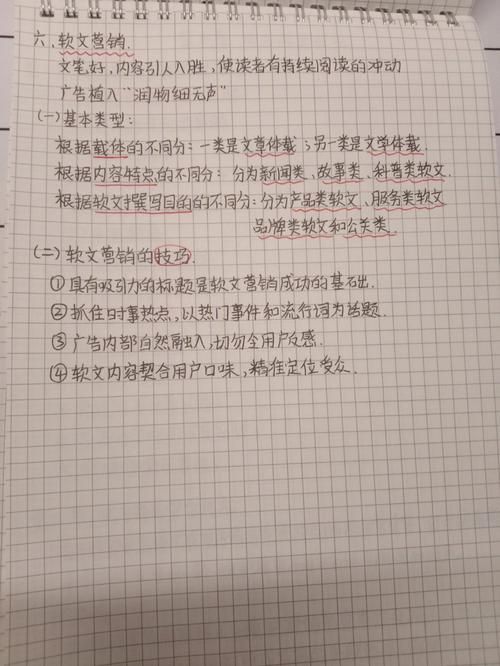 六、软文营销.
文笔好,内容引人入胜,使读者有持续阅读的冲动
广告植入“润物细无声”
(一)基本类型:
根据载体的不同分:一类是文章体裁;另一类是文学体裁.
根据内容特点的不同分:分为新闻类、故事类、科普类软文.
根据软文撰写目的的不同分:分为产品类软文、服务类软文
品牌类软文和公关类.
(二)软文营销的技巧.
①具有吸引力的标题是软文营销成功的基础.
②抓住时事热点,以热门事件和流行词为话题.
③广告内部自然融入,切勿令用户反感.
④软文内容契合用户口味,精准定位受众.